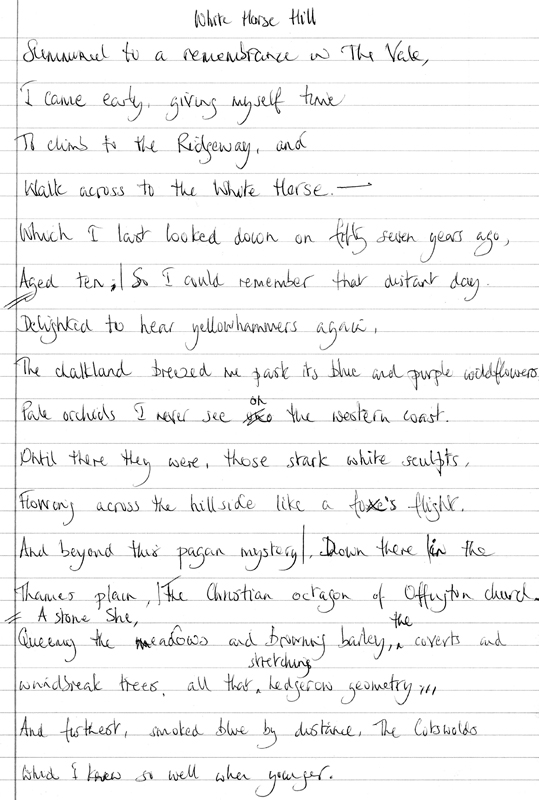 White Horse Hill
Summoned to a remembrance in The Vale,
I came early, giving myself time
To climb to the Ridgeway, and
Walk across to the White Horse. —
Which I last looked down on fifty seven years ago,
Aged ten; | So I could remember that distant day.
Delighted to hear yellowhammers again,
The chalkland breezed me past its blue and purple wildflowers
on
Pale orchids I never see the western coast.
Until there they were, those stark white sculpts,
Flowing across the hillside like a foxe's flight.
And beyond this pagan mystery|, Down there |in the
Thames plain, |The Christian octagon of Uffington church.
A stone She, the
Queening the meadows and browning barley, ^ coverts and
stretching
windbreak trees, all that ^ hedgerow geometry,,,
And furthest, smoked blue by distance, The Cotswolds
Which I knew so well when younger.